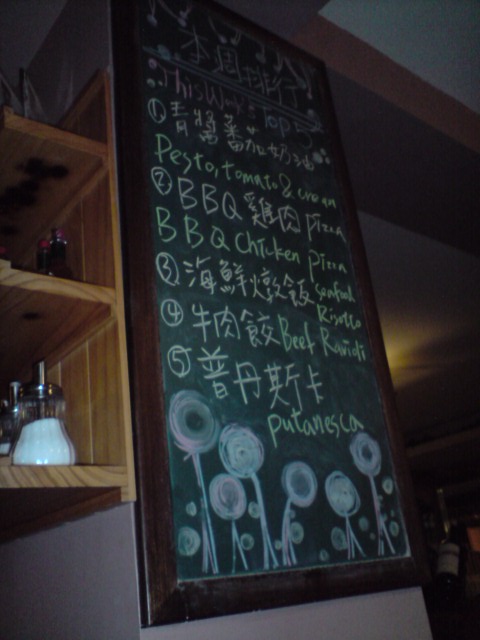 本週排行
This Week's Top 5
①青醬蕃茄奶油
Pesto, tomato & cream
②BBQ雞肉 pizza
BBQ Chicken pizza
③海鮮燉飯 seafood
Risotto
④牛肉餃 Beef Ravioli
⑤普丹斯卡
putanesca